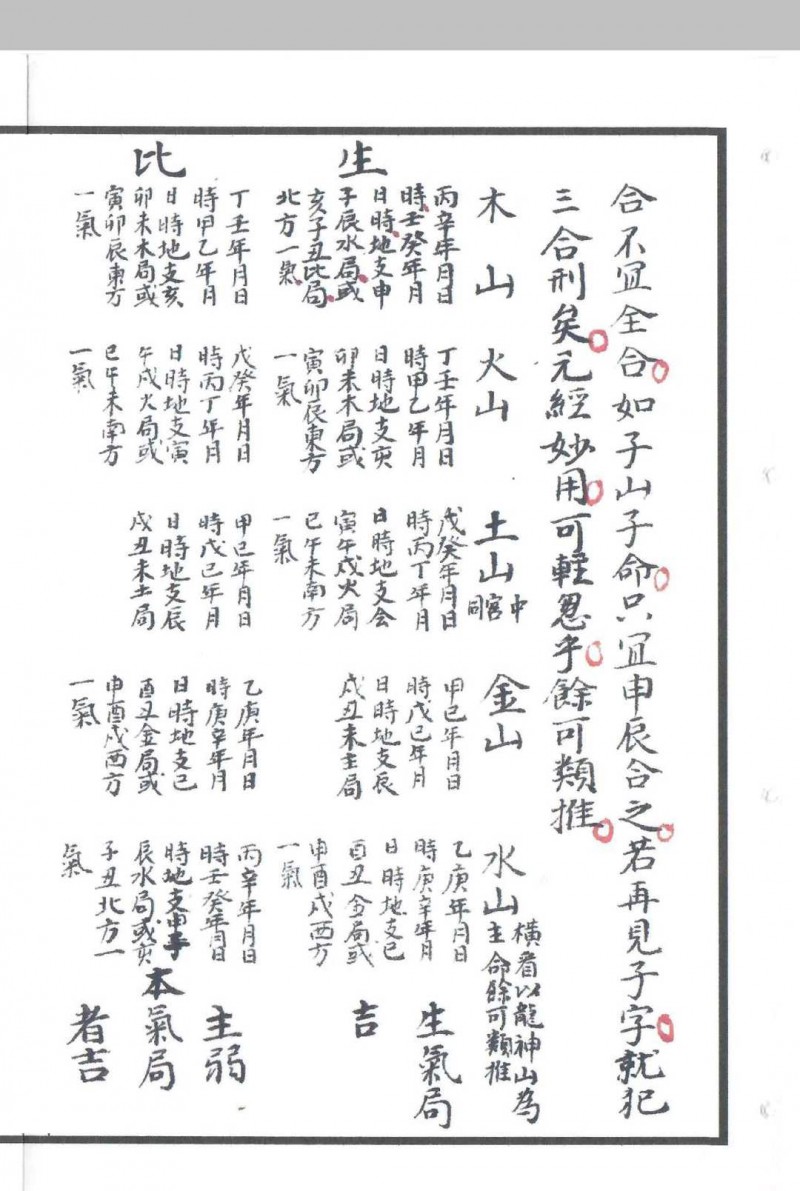 合不冝全合如子山子命只冝申辰合之若再見子字就犯
三合刑矣元經妙用可輕忽乎餘可類推
木山
火山
土山
中宮同
金山
水山
橫看以龍神山為
主命餘可類推
生
丙辛年月日
時壬癸年月
日時地支申
子辰水局或
亥子丑比局
北方一氣
丁壬年月日
時甲乙年月
日時地支亥
卯未木局或
寅卯辰東方
一氣
戊癸年月日
時丙丁年月
日時地支会
寅午戌火局
巳午未南方
一氣
甲己年月日
時戊己年月
日時地支辰
戌丑未土局
乙庚年月日
時庚辛年月
日時地支巳
酉丑金局或
申酉戌西方
一氣
生氣局
吉
比
丁壬年月日
時甲乙年月
日時地支亥
卯未木局或
寅卯辰東方
一氣
戊癸年月日
時丙丁年月
日時地支寅
午戌火局或
巳午未南方
一氣
甲己年月日
時戊己年月
日時地支辰
戌丑未土局
乙庚年月日
時庚辛年月
日時地支巳
酉丑金局或
申酉戌西方
一氣
丙辛年月日
時壬癸年月日
時地支申子
辰水局或亥
子丑北方一
氣
主弱
本氣局
者吉